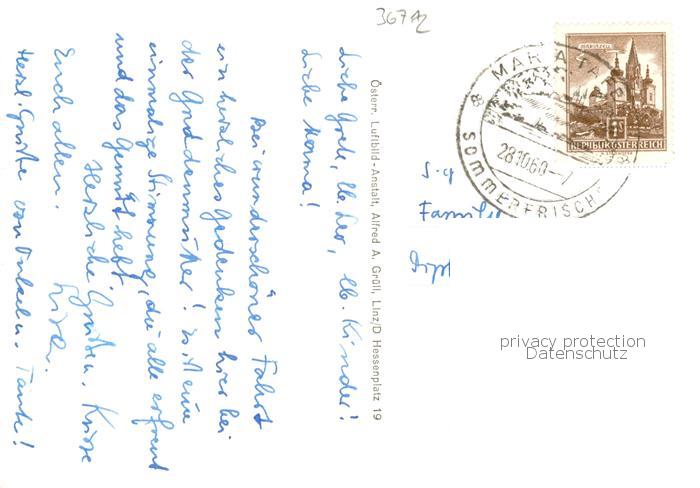 367
MARIAZELL
REPUBLIK ÖSTERREICH
MARIA TA
28.10.60-7
SOMMERFRISCH
S.g
Famili
Dipl
privacy protection
Datenschutz
Österr. Luftbild-Anstalt, Alfred A. Gröll, Linz/D Hessenplatz 19
Liebe Grete, lb. Leo, lb. Kinder!
Liebe Mama!
Bei wunderschöner Fahrt
ein herzliches Gedenken hier bei
der Gnadenmutter! Es ist eine
einmalige Stimmung, die alle erfreut
und das Gemüt hebt.
Herzliche Grüße, Küsse
Euch allen.
Herzl. Grüße von Onkel u. Tante!